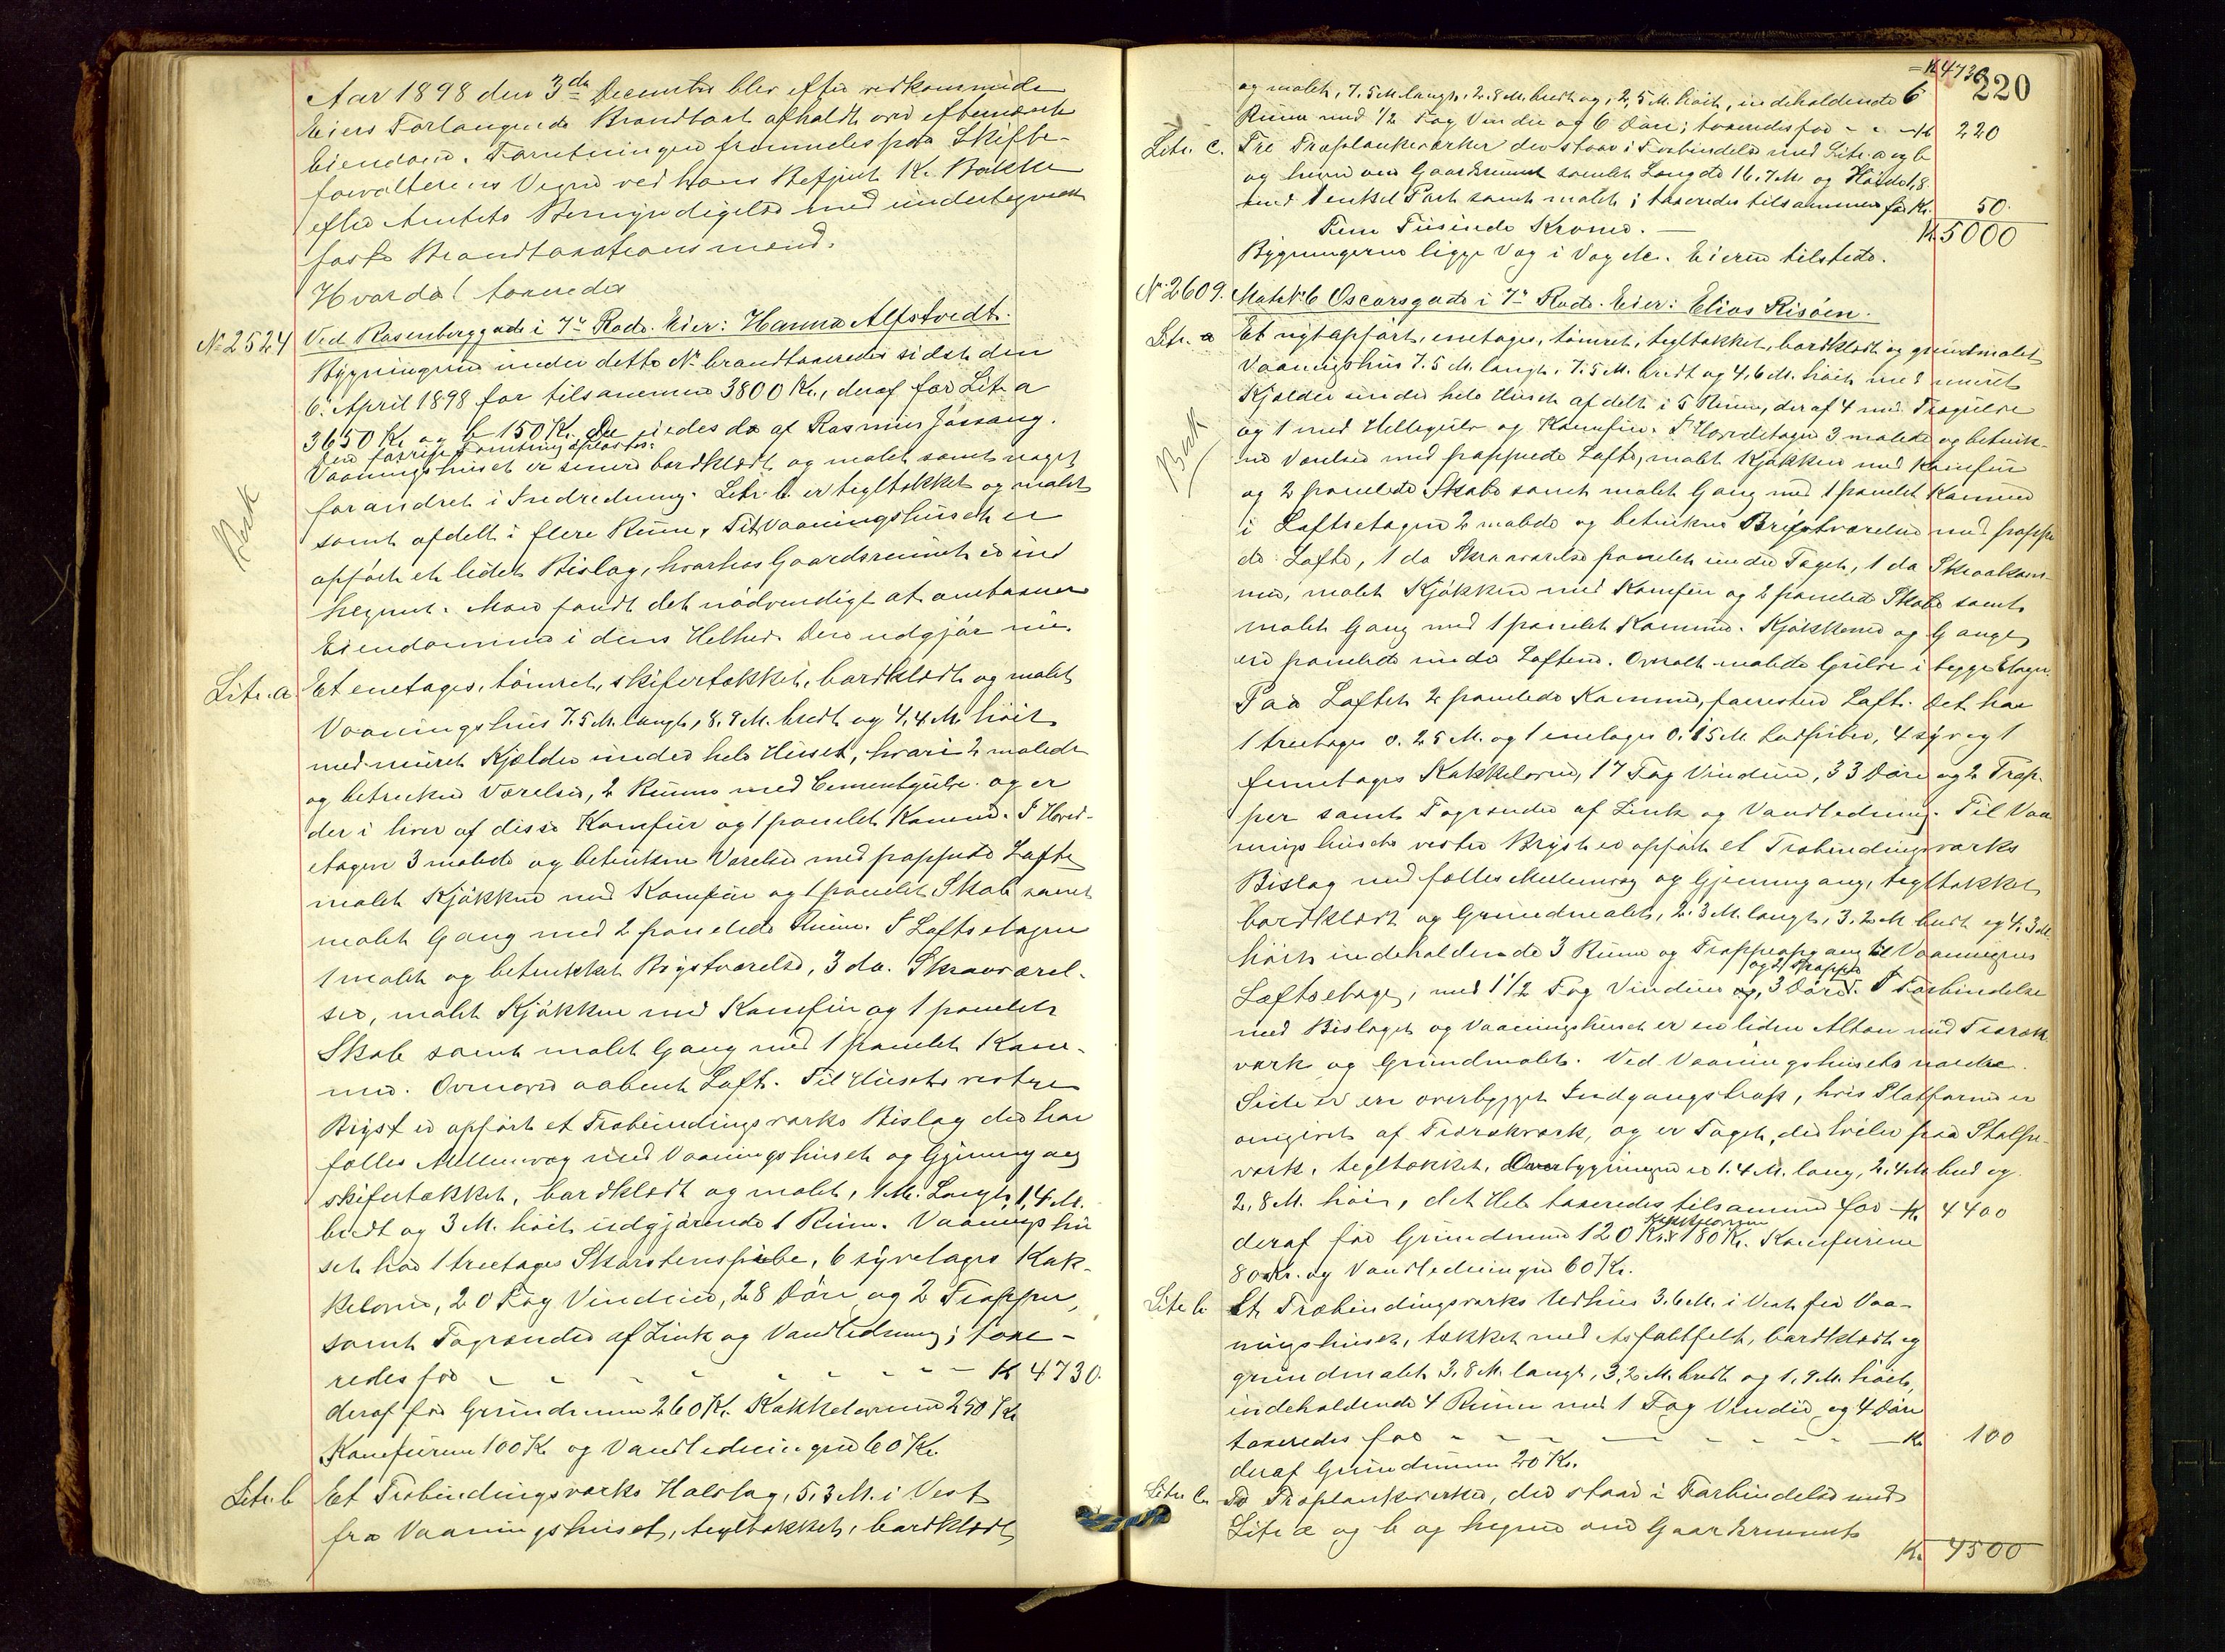 Aar 1898 den 3die December blev efter vedkommende
Eiers Forlangende Brandtaxt afholdt over efternævnte
Eiendom. Forretningen fremmedes paa Skifte-
forvalterens Vegne ved hans Befuldm. K. Bakke
efter Amtets Bemyndigelse med undertegnede
faste Brandtaxationsmænd.
Hvorda! taxeredes
No 2524 Ved Rosenberggade i 7de Rode. Eier: Hanna Alfstvedt.
Bygningerne under dette No brandtaxeredes sidst den
6. April 1898 for tilsammen 3800 Kr., deraf for Litr. a
3650 Kr. og b 150 Kr. De eiedes da af Rasmus Jössang.
Den forrige Tomtning opløstes.
Vaaningshuset er senere bordklædt og malet samt noget
forandret i Indredning. Litr. b. er tegltækket og malet
samt afdelt i flere Rum. Til Vaaningshuset er
opfört et lidet Bislag, hvorhos Gaardsrummet er ind
hegnet. Man fandt det nödvendigt at omtaxere
Eiendommen i dens Helhed. Den udgjör nu.
Besk
Litr. a. Et enetages, tömret, skifertækket, bordklædt og malet
Vaaningshus 7.5 M. langt, 8.9 M. bredt og 4,4 M. höit
med muret Kjælder under hele Huset, hvori 2 malede
og betrukne Værelser, 2 Rumme med Cementgulve. og er
der i hver af disse Komfur og 1 panelet Kammer. I Hoved-
etagen 3 malede og betrukne Værelser med pappede Lofte
malet Kjökken med Komfur og 1 panelet Skab samt
malet Gang med 2 panelede Rum. I Loftsetagen
1 malet og betrukket Brystværelse, 3 do. Skraaværel-
ser, malet Kjökken med Komfur og 1 panelet
Skab samt malet Gang med 1 panelet Kam-
mer. Ovenover aabent Loft. Til Husets vestre
Bryst er opfört et Træbindingsværks Bislag der har
fælles Mellemvæg med Vaaningshuset og Gjennemgang
skifertækket, bordklædt og malet, 1 M. Langt, 1,4 M.
bredt og 3 M. höit udgjörende 1 Rum. Vaaningshu
set har 1 treetages Skorstenspibe, 6 syvetages Kak-
kelovne, 20 Fag Vinduer, 28 Döre og 2 Trapper,
samt Tagrender af Zink og Vandledning; taxe-
redes for - - - - - - - Kr 4730.
deraf for Grundmuren 260 Kr. Kakkelovnene 250 Kr
Komfurene 100 Kr og Vandledningen 60 Kr.
Litr. b Et Træbindingsværks Halvtag, 5,3 M. i Vest
fra Vaaningshuset, tegltækket, bordklædt
= Kr 4730
220
og malet, 7,5 M. langt, 2.8 M. bredt og 2,5 M. höit, indeholdende 6
Rum med 1/2 Fag Vindu og 6 Döre; taxeredes for - - Kr 220
Litr. c. Tre Træplankeværker der staar i Forbindelse med Litr. a og b
og hegner om Gaardsrummet samlet Længde 16.7 M. og Höide 1,8
med 1 enkel Port samt malet; taxeredes tilsammen for Kr. 50.
Fem Tusinde Kroner. — Kr. 5000
Bygningerne ligge Væg i Væg etc. Eieren tilstede.
No 2609. Matr No 6 Oscarsgade i 7de Rode. Eier: Elias Risöen.
Litr. a Et nytopfört, enetages, tömret, tegltækket, bordklædt og grundmalet
Vaaningshus 7.5 M. langt, 7.5 M. bredt og 4,6 M. höit med muret
Kjælder under hele Huset afdelt i 5 Rum, deraf 4 med Trægulve
og 1 med Hellegulv og Komfur. I Hovedetagen 3 malede og betruk-
ne Værelser med pappede Lofte, malet Kjökken med Komfur
og 2 panelede Skabe samt malet Gang med 1 panelet Kammer
i Loftsetagen 2 malede og betrukne Brystværelser med pappe
de Lofte, 1 do Skraaværelse panelet under Taget, 1 do Skraakam-
mer, malet Kjökken med Komfur og 2 panelede Skabe samt
malet Gang med 1 panelet Kammer. Kjökkener og Gange
ere panelede under Loftene. Overalt malede Gulve i begge Etager.
Paa Loftet 2 panelede Kammer, forresten Loft. Det har
1 treetages 0.25 M. og 1 enetages 0.15 M. Luftpiber, 4 syv og 1
femetages Kakkelovne, 17 Fag Vinduer, 33 Döre og 2 Trap-
per samt Tagrender af Zink og Vandledning. Til Vaa
ningshusets vestre Bryst er opfört et Træbindingsværks
Bislag med fælles Mellemvæg og Gjennemgang, tegltækket
bordklædt og Grundmalet, 2.3 M. langt, 3.2 M. bredt og 4.3 M.
höit indeholdende 3 Rum og Trappeopgang til Vaaningens
Loftsetage, med 1 1/2 Fag Vinduer og 3 Döre og 2 Trappe. I Forbindelse
med Bislaget og Vaaningshuset er en liden Altan med Træræk-
værk og Grundmalet. Ved Vaaningshusets nordre
Side er en overbygget Indgangstrap, hvis Platform er
omgivet af Trærækværk, og er Taget, der hviler paa Stolpe-
værk, tegltækket. Overbygningen er 1.4 M. lang, 2.4 M. bred og
2,8 M. höi, det Hele taxeredes tilsammen for Kr. 4400
deraf for Grundmuren 120 Kr. Kakkelovnene 180 Kr. Komfurene
80 Kr. og Vandledningen 60 Kr.
Besk
Litr. b. Et Træbindingsværks Udhus 3.6 M. i Vest fra Vaa-
ningshuset, tækket med Asfaltfelt, bordklædt og
grundmalet 3,8 M. langt, 3,2 M. bredt og 1,9 M. höit,
indeholdende 4 Rum med 1 Fag Vindu og 4 Döre
taxeredes for - - - - - - - Kr. 100
deraf Grundmuren 20 Kr.
Litr. c. To Træplankeværker, der staar i Forbindelse med
Litr. a og b og hegner om Gaardsrummet
Kr. 4500